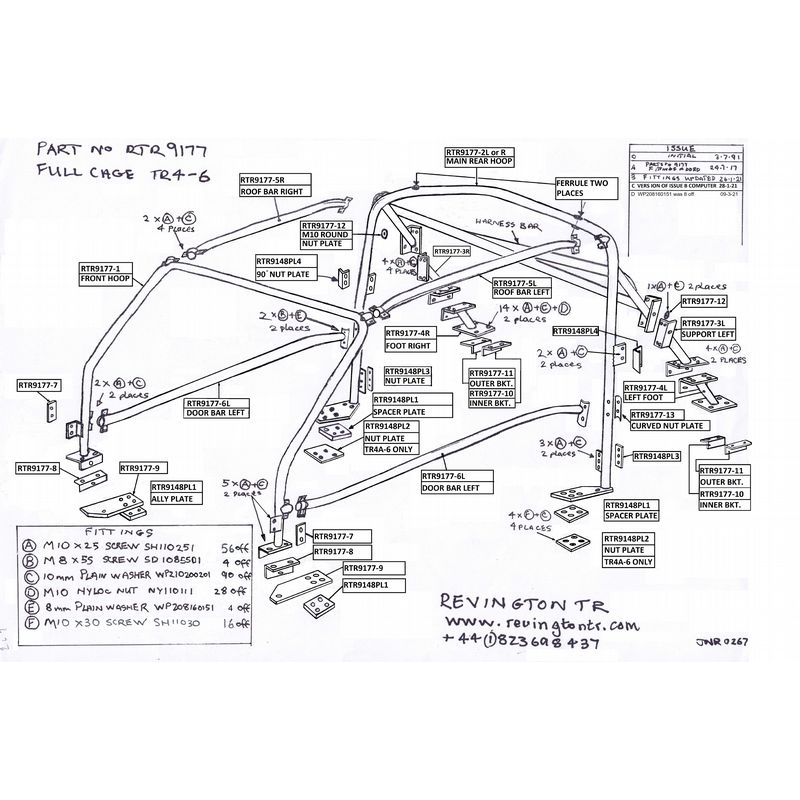 PART NO RTR9177
FULL CAGE TR4-6
RTR9177-2L or R
MAIN REAR HOOP
ISSUE
O INITIAL 3.7.91
A PARTS No 9177 FITTINGS ADDED 24.7.17
B FITTINGS UPDATED 26-1-21
C VERSION OF ISSUE B COMPUTER 28-1-21
D WP208160151 was 8 off 09-3-21
RTR9177-5R
ROOF BAR RIGHT
FERRULE TWO
PLACES
2 x A + C
4 PLACES
HARNESS BAR
RTR9177-12
M10 ROUND
NUT PLATE
RTR9177-3R
4 x A + C
4 PLACES
RTR9148PL4
90° NUT PLATE
RTR9177-1
FRONT HOOP
RTR9177-5L
ROOF BAR LEFT
1 x A + E 2 places
RTR9177-12
14 x A + C + D
2 places
2 x B + E
2 places
RTR9177-4R
FOOT RIGHT
RTR9148PL4
RTR9177-3L
SUPPORT LEFT
4 x A + C
2 PLACES
2 x A + C
2 places
RTR9148PL3
NUT PLATE
RTR9177-11
OUTER BKT.
RTR9177-10
INNER BKT.
RTR9177-7
2 x A + C
2 places
RTR9177-6L
DOOR BAR LEFT
RTR9148PL1
SPACER PLATE
RTR9177-4L
LEFT FOOT
RTR9177-13
CURVED NUT PLATE
RTR9148PL2
NUT PLATE
TR4A-6 ONLY
3 x A + C
2 places
RTR9148PL3
RTR9177-8
RTR9177-9
RTR9148PL1
ALLY PLATE
RTR9177-6L
DOOR BAR LEFT
RTR9177-11
OUTER BKT.
RTR9177-10
INNER BKT.
5 x A + C
2 PLACES
4 x F + C
4 PLACES
RTR9148PL1
SPACER PLATE
RTR9148PL2
NUT PLATE
TR4A-6 ONLY
RTR9177-7
RTR9177-8
RTR9177-9
RTR9148PL1
FITTINGS
A M10 x 25 SCREW SH110251 56 off
B M8 x 55 SCREW SD108S501 4 off
C 10mm PLAIN WASHER WP210200201 90 off
D M10 NYLOC NUT NY110111 28 off
E 8mm PLAIN WASHER WP208160151 4 off
F M10 x 30 SCREW SH11030 16 off
REVINGTON TR
www.revingtontr.com
+44(1)823698437
JNR 0267